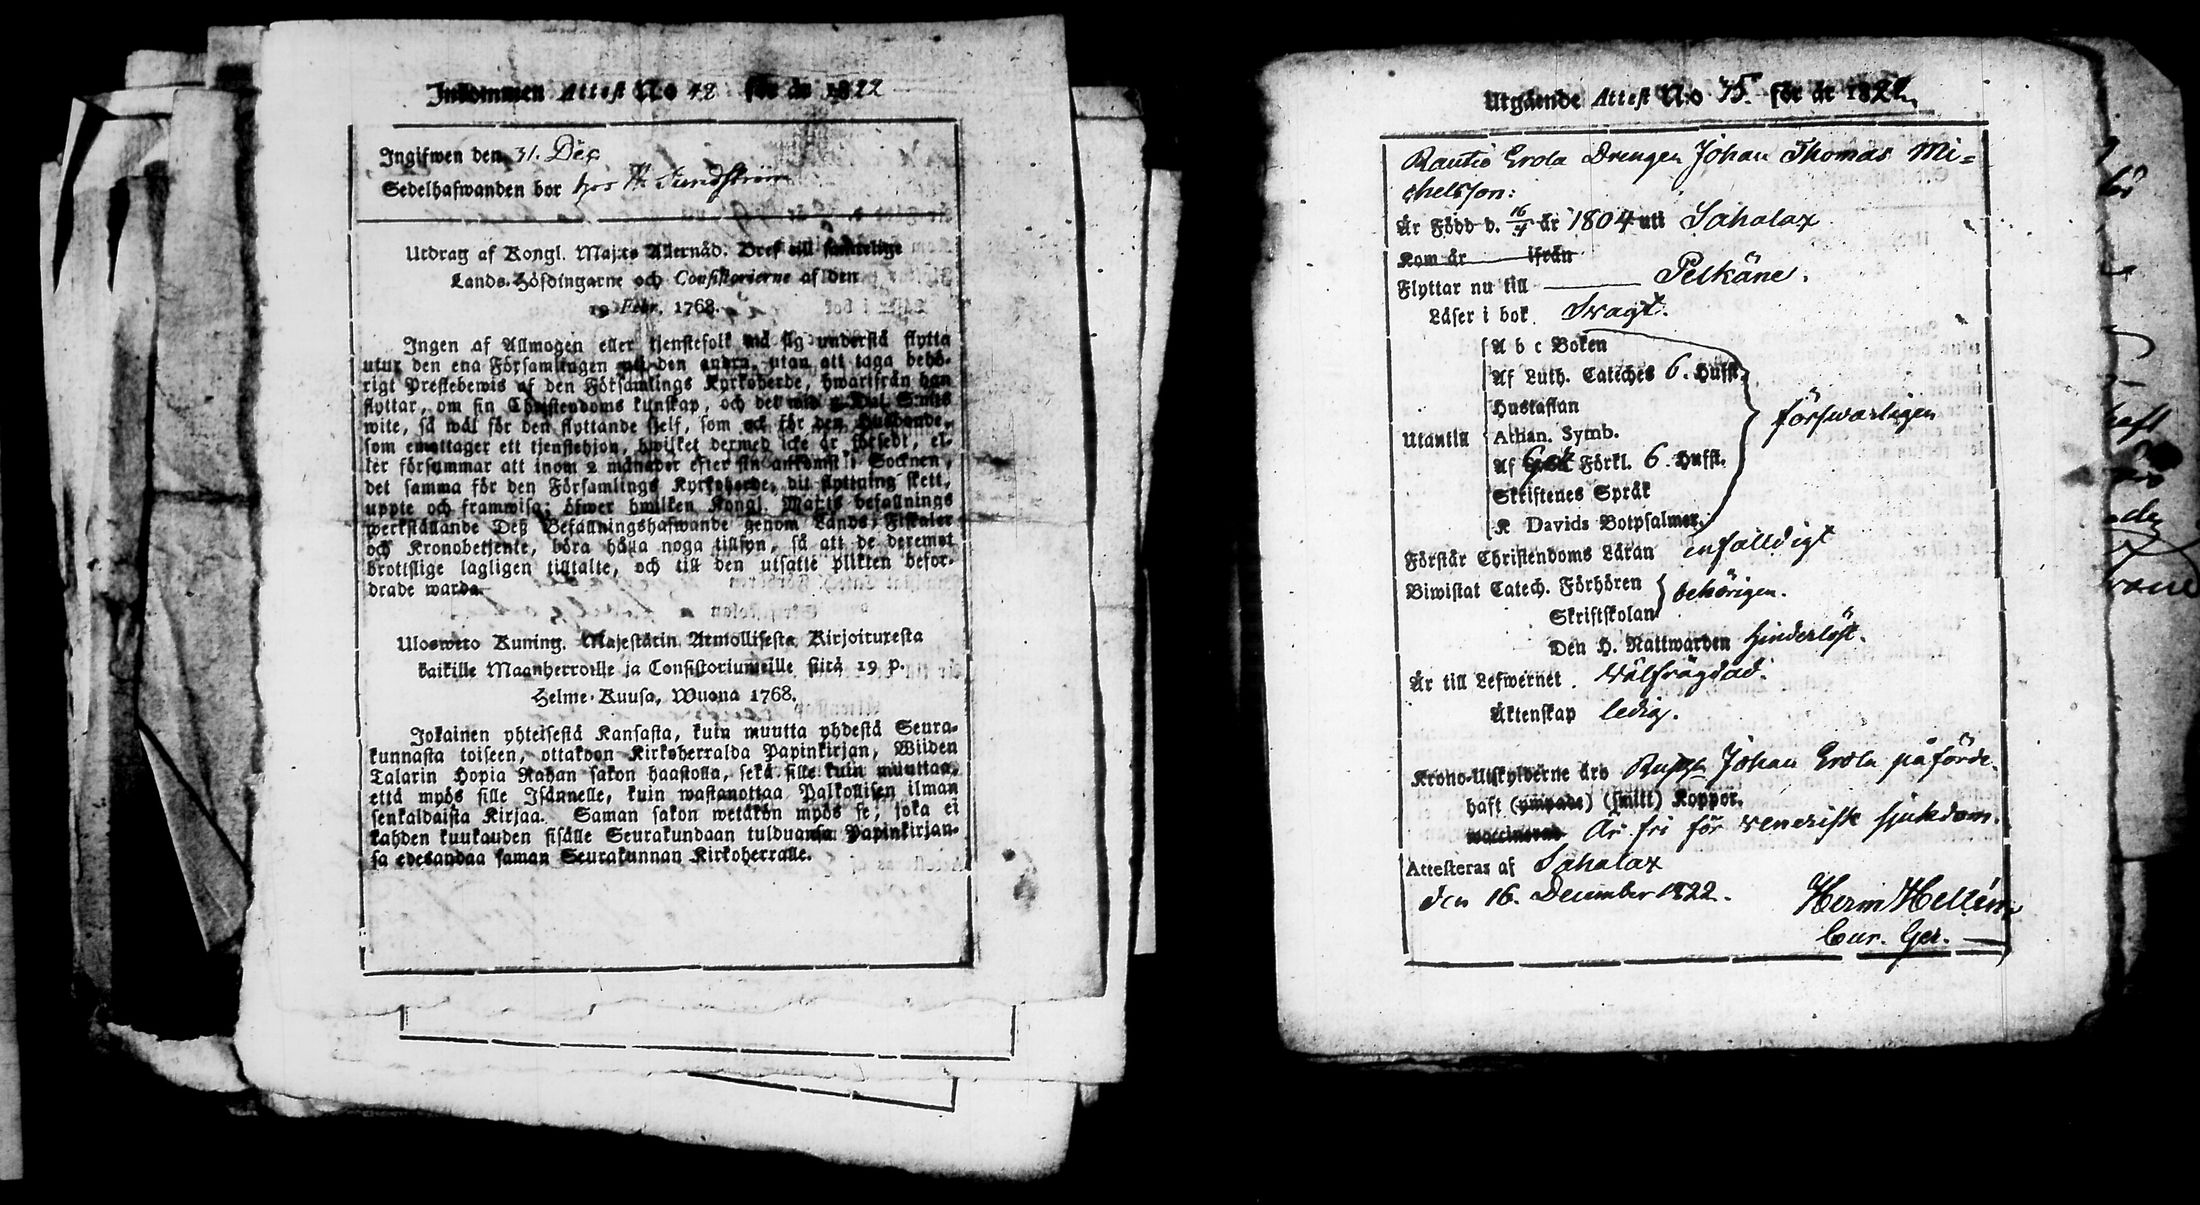 Inkommen Attest No 48 för år 1822
Ingifwen den 31. Dec
Sedelhafwanden bor hos Sundström
Utdrag af Kongl. Maj:ts Allernåd. Bref till samtelige
Lands-Höfdingarne och Consistorierne af den
19 Febr. 1768.
Ingen af Allmogen eller tjenstefolk må sig understå flytta
utur den ena Församlingen uti den andra, utan att taga behö-
rigt Prestebewis af den Församlings Kyrkoherde, hwarifrån han
flyttar, om sin Christendoms kunskap, och det wid 5 Dal. S:mts
wite, så wäl för den flyttande sjelf, som ock för den Husbonde,
som emottager ett tjenstehjon, hwilket dermed icke är försedt, el-
ler försummar att inom 2 månader efter sin ankomst i Socknen,
det samma för den Församlings Kyrkoherde, dit flyttning skett,
uppte och framwisa; öfwer hwilken Kongl. Maj:ts befallnings
werkställande Deß Befallningshafwande genom Lands-Fiskaler
och Kronobetjente, böra hålla noga tillsyn, så att de deremot
brottslige lagligen tilltalte, och till den utsatte plikten befor-
drade warda.
Uloswetto Kuning. Majestätin Armollisesta Kirjoituxesta
kaikille Maanherroille ja Consistoriumeille siitä 19 p.
Helme-Kuusa, Wuona 1768.
Jokainen yhteisestä Kansasta, kuin muutta yhdestä Seura-
kunnasta toiseen, ottakoon Kirkoherralda Papinkirjan, Wiiden
Talarin Hopia Rahan sakon haastolla, sekä sille kuin muuttaa,
että myös sille Isännelle, kuin wastanottaa Palkollisen ilman
senkaldaista Kirjaa. Saman sakon wetäkön myös se, joka ei
kahden kuukauden sisälle Seurakundaan tulduansa Papinkirjan-
sa edesandaa saman Seurakunnan Kirkoherralle.
Utgående Attest No 35. för år 1822.
Rautio Erola Drengen Johan Thomas Mi=
chelsson:
Är Född d. 16/4 år 1804 uti Sahalax
Kom år ifrån
Flyttar nu till Pelkäne.
Läser i bok Swagt.
A b c Boken
Af Luth. Cateches 6. Hufst.
Hustaflan
Utantill
Athan. Symb.
förswarligen
Af Förkl. 6. Hufst.
Skriftenes Språk
K Davids Botpsalmer.
Förstår Christendoms Läran enfalldigt
Biwistat Catech. Förhören
behörigen.
Skriftskolan
Den H. Nattwarden hinderlöst.
Är till Lefwernet wälfrägdad.
Äktenskap ledig.
Krono-Utskylderne äro Johan Erola påförde.
haft (ympade) (smitt) Koppor.
waccinerad Är fri för venerisk sjukdom.
Attesteras af Sahalax
den 16. December 1822.
Herm Hellén
Cur. Ger.